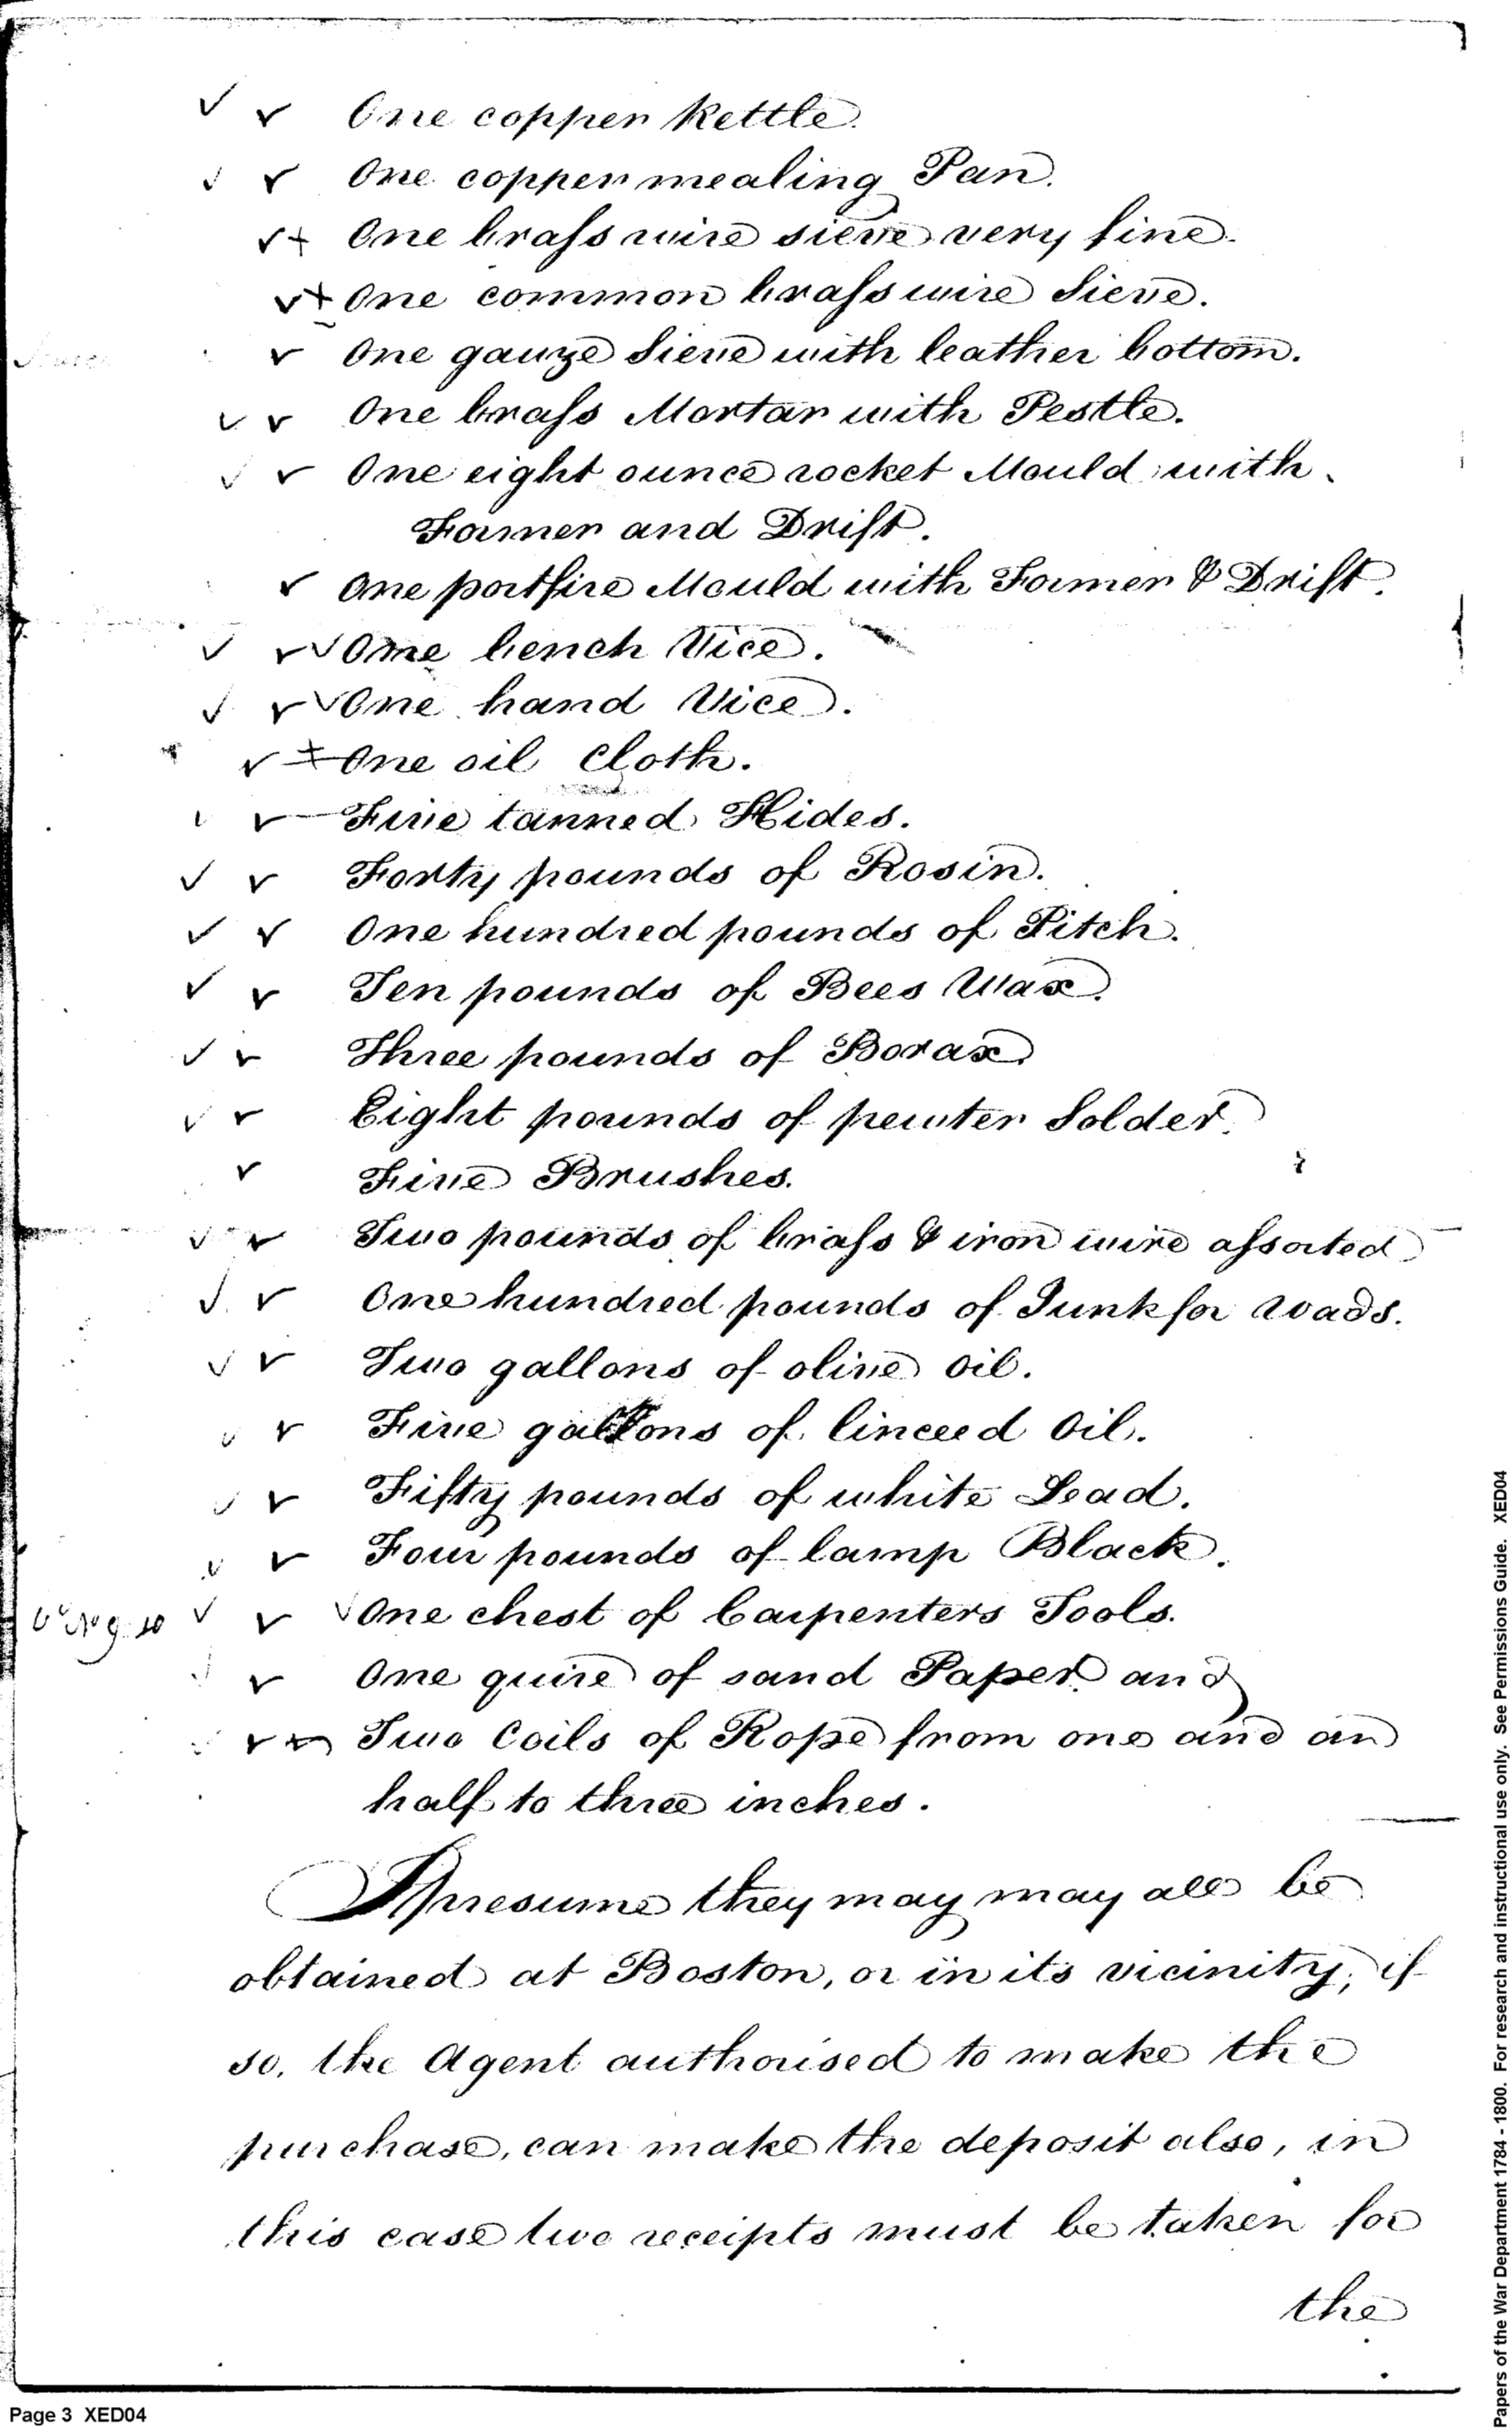 ✓ ✓ One copper kettle.
✓ ✓ One copper mealing Pan.
✓+ One brass wire sieve very fine.
✓+ One common brass wire Sieve.
✓ One gauze Sieve with leather bottom.
✓ ✓ One brass Mortar with Pestle.
✓ ✓ One eight ounce rocket Mould with
Former and Drift.
✓ One portfire Mould with Former & Drift.
✓ ✓✓ One bench Vice.
✓ ✓✓ One hand Vice.
✓ + One oil Cloth.
✓ ✓ Five tanned Hides.
✓ ✓ Forty pounds of Rosin.
✓ ✓ One hundred pounds of Pitch.
✓ ✓ Ten pounds of Bees Wax.
✓ ✓ Three pounds of Borax
✓ ✓ Eight pounds of pewter Solder.
✓ Five Brushes.
✓ ✓ Two pounds of brass & iron wire assorted
✓ ✓ One hundred pounds of Junk for wads.
✓ ✓ Two gallons of olive Oil.
✓ ✓ Five gallons of linceed Oil.
✓ ✓ Fifty pounds of white Lead.
✓ ✓ Four pounds of lamp Black.
✓ ✓ ✓ One chest of Carpenters Tools.
✓ ✓ One quire of sand Paper and
✓ ✓ Two Coils of Rope from one and an
half to three inches.
I presume they may may all be
obtained at Boston, or in its vicinity, if
so, the Agent authorised to make the
purchase, can make the deposit also, in
this case two receipts must be taken for
the
Page 3 XED04
Papers of the War Department 1784 - 1800. For research and instructional use only. See Permissions Guide. XED04